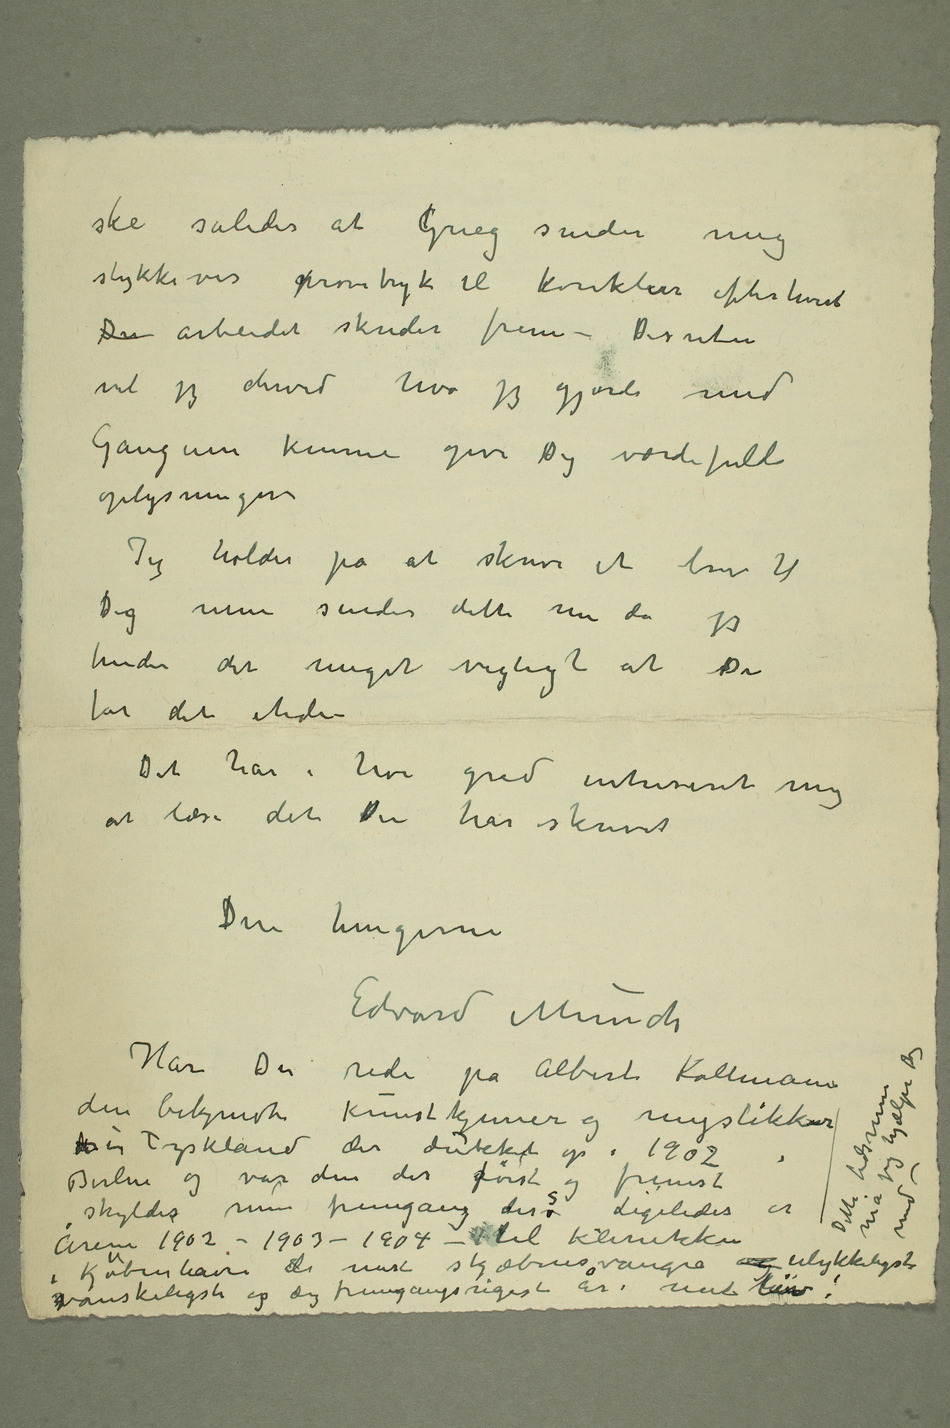 ske således at Grieg sender mig
stykkevis prøvetryk til korrektur efterhvert
Du arbeidet skrider frem – Desuten
vil jeg derved hva jeg gjorde med
Gauguin kunne give Dig værdifulde
oplysninger
Jeg holder på at skrive et brev til
Dig men sender dette nu da jeg
finder det meget vigtigt at Du
får det itide –
Det har i høi grad interesseret mig
at læse det Du har skrevet
Din hengivne
Edvard Munch
Har Du rede på Albert Kollmann
den bekjendte Kunstkjenner og mystikker
i Tyskland der dukket op i 1902 i
Berlin og var den der først og fremst
skyldes min fremgang der? Ligeledes er
årene 1902 – 1903 – 1904 – til klinikken
i Kjøbenhavn de mest skjæbnesvangre og ulykkeligste
vanskeligste og dog fremgangsrigest år i mit liv!
Dette tidsrum
må jeg hjælpe Dig
med –